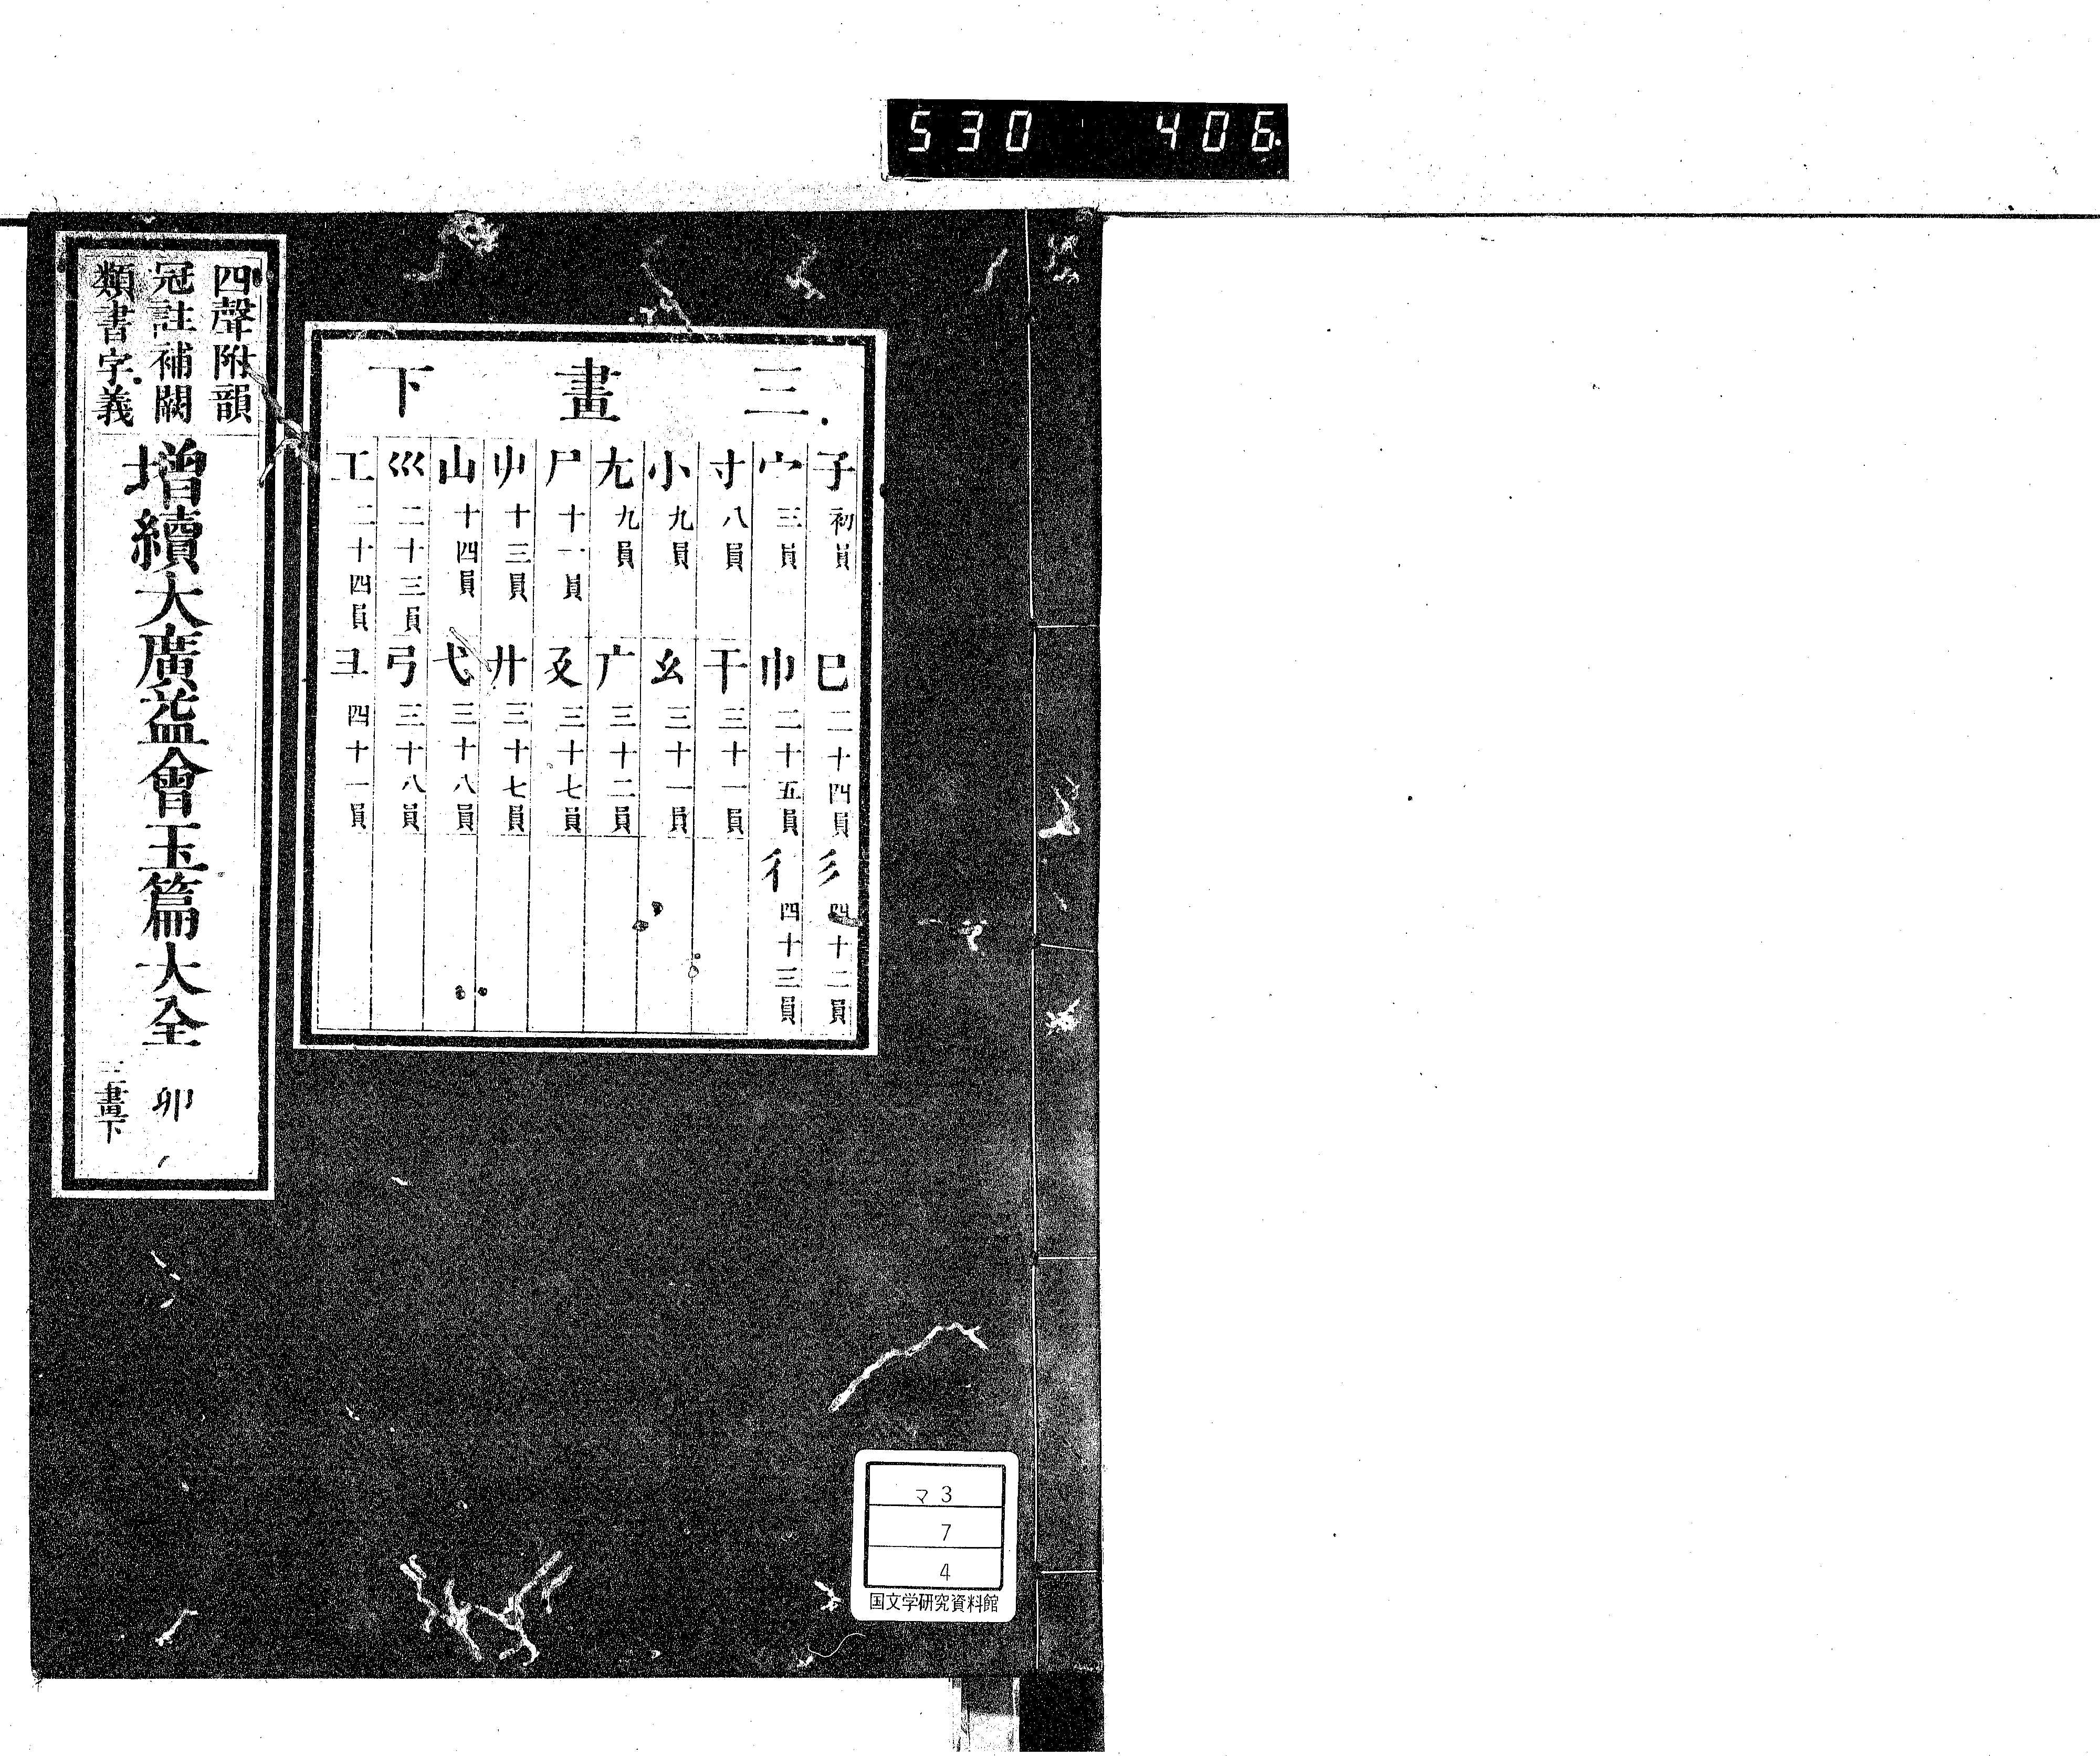 530 406
三畫下
子 初員
宀 三員
寸 八員
小 九員
尢 九員
尸 十一員
屮 十三員
山 十四員
巛 二十三員
工 二十四員
巳 二十四員
巾 二十五員
干 三十一員
幺 三十一員
广 三十二員
廴 三十七員
廾 三十七員
弋 三十八員
弓 三十八員
彐 四十一員
彡 四十二員
彳 四十三員
四聲附韻
冠註補闕
類書字義
增續大廣益會玉篇大全 卯
三畫下
マ3
7
4
国文学研究資料館